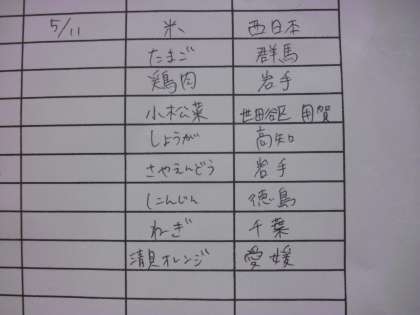 5/11 米 西日本
たまご 群馬
鶏肉 岩手
小松菜 世田谷区 用賀
しょうが 高知
さやえんどう 岩手
にんじん 徳島
ねぎ 千葉
清見オレンジ 愛媛